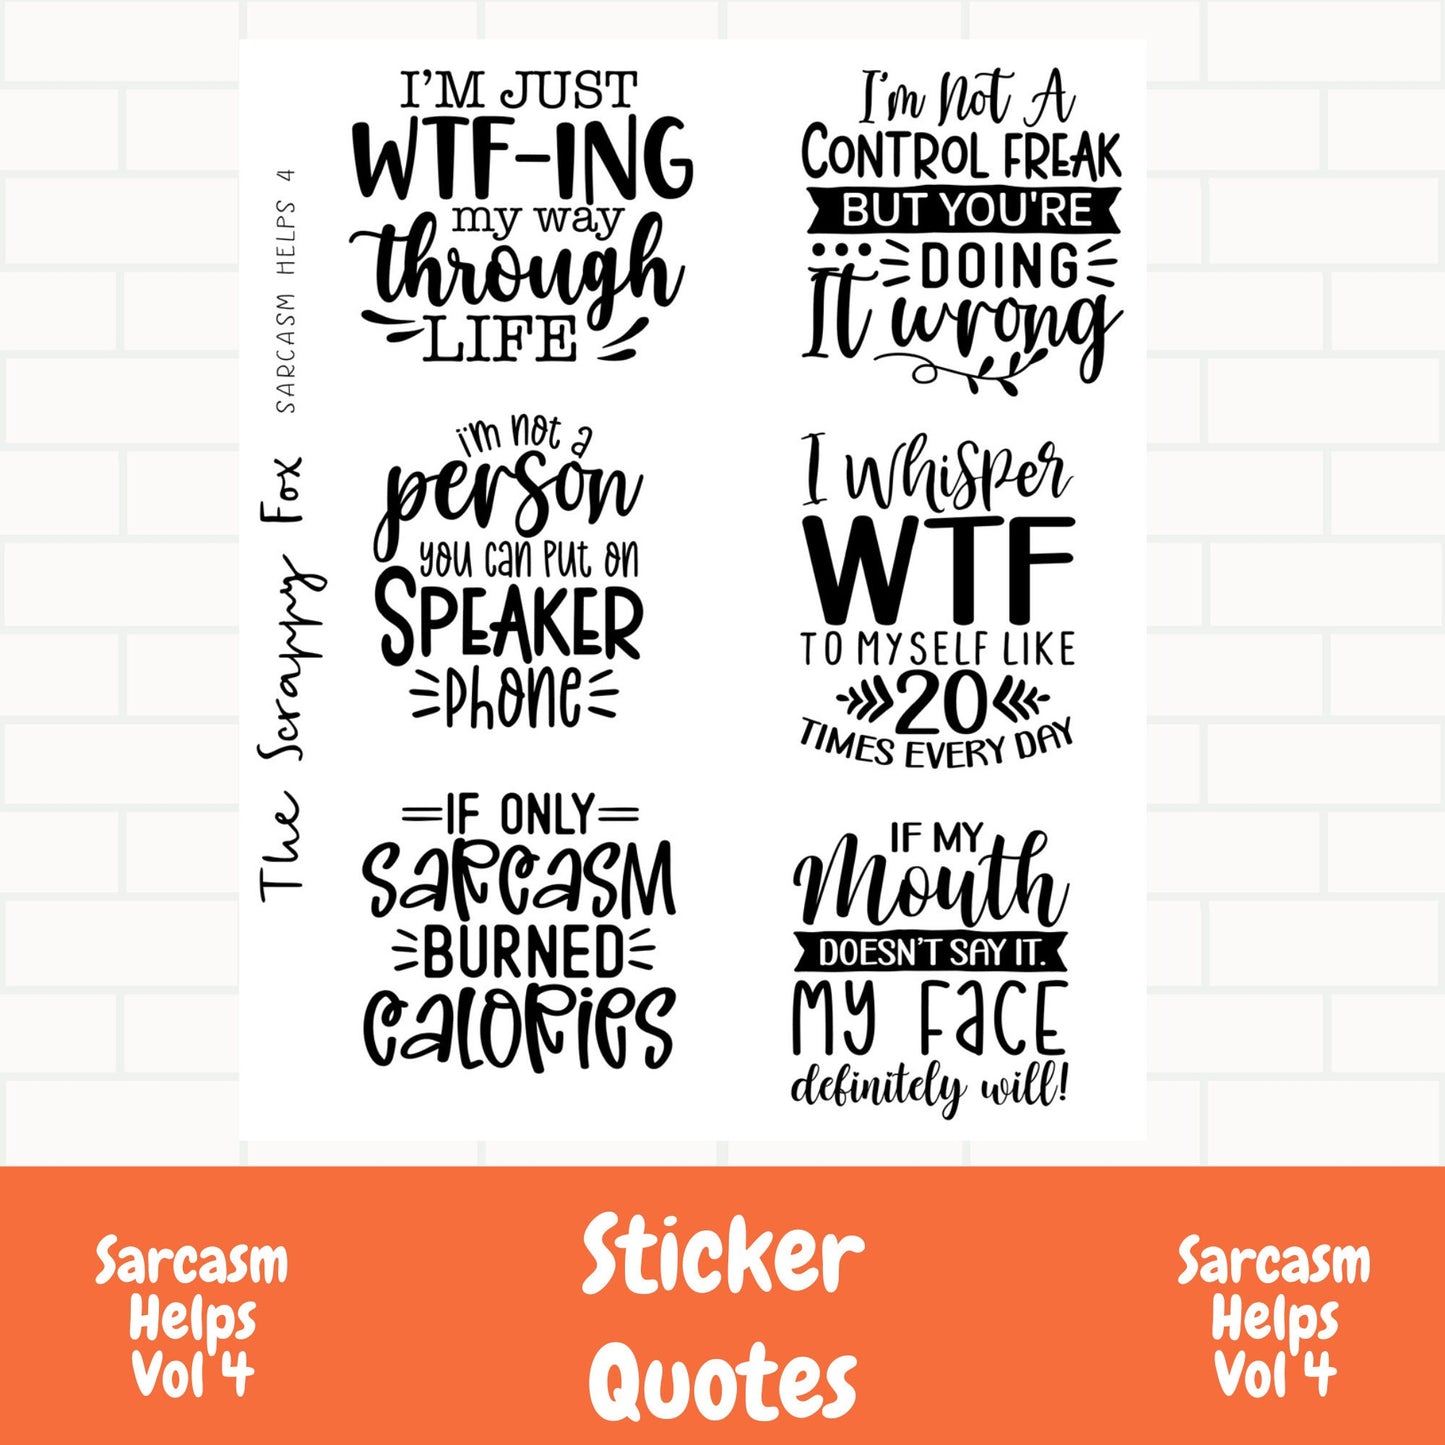 The Scrappy Fox SARCASM HELPS 4
I'M JUST
WTF-ING
my way
through
LIFE
I'm Not A
CONTROL FREAK
BUT YOU'RE
... DOING
It wrong
i'm not a
person
you can put on
SPEAKER
phone
I Whisper
WTF
TO MYSELF LIKE
20
TIMES EVERY DAY
=IF ONLY=
SARCASM
BURNED
CALORIES
IF MY
Mouth
DOESN'T SAY IT.
MY FACE
definitely will!
Sarcasm
Helps
Vol 4
Sticker
Quotes
Sarcasm
Helps
Vol 4